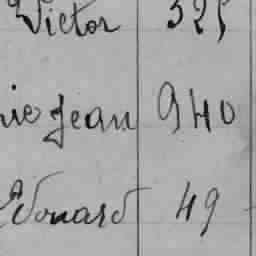 Victor 325
ie Jean 940
Edouard 49